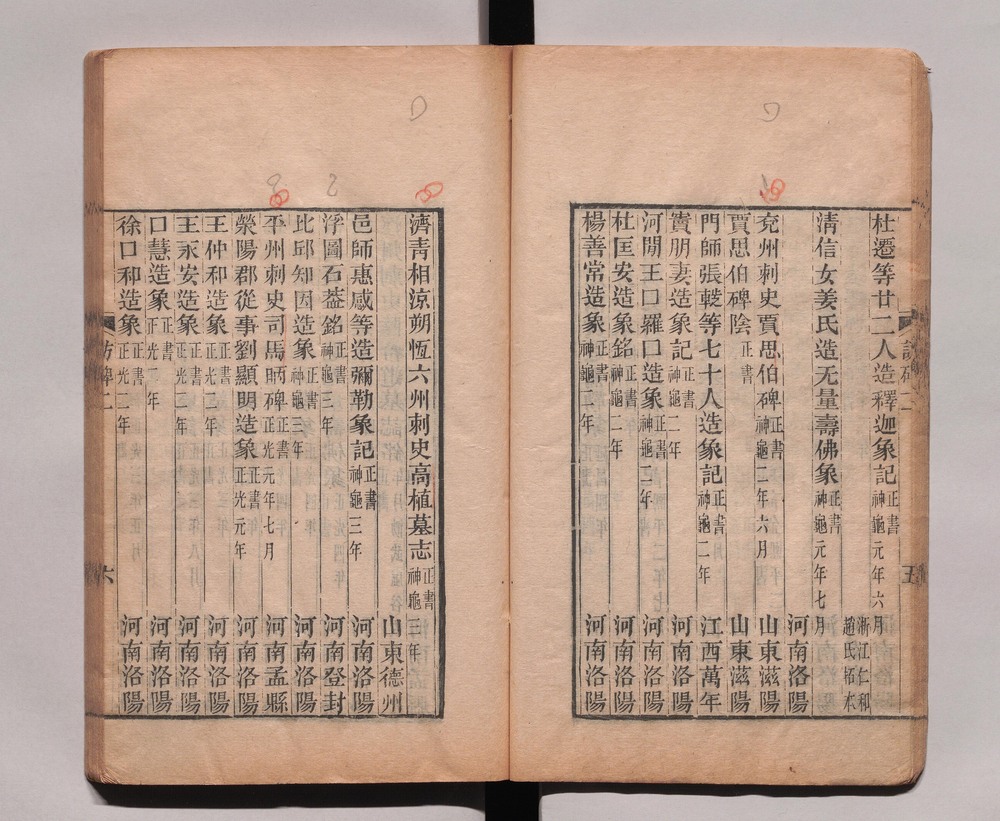 杜遷等廿二人造釋迦象記 正書 神龜元年六月 浙江仁和趙氏拓本
清信女姜氏造无量壽佛象 正書 神龜元年七月
河南洛陽
兗州刺史賈思伯碑 正書 神龜二年六月 山東滋陽
賈思伯碑陰 正書 山東滋陽
門師張㪅等七十人造象記 正書 神龜二年 江西萬年
竇朋妻造象記 正書 神龜二年 河南洛陽
河閒王口羅口造象 正書 神龜二年 河南洛陽
杜匡安造象銘 正書 神龜二年 河南洛陽
楊善常造象 正書 神龜二年 河南洛陽
五
濟青相涼朔恆六州刺史高植墓志 正書 神龜三年 山東德州
邑師惠感等造彌勒象記 正書 神龜三年 河南洛陽
浮圖石葢銘 正書 神龜三年 河南登封
比邱知因造象 正書 神龜三年 河南洛陽
平州刺史司馬昞碑 正書 正光元年七月 河南孟縣
滎陽郡從事劉顯明造象 正書 正光元年 河南洛陽
王仲和造象 正書 正光二年 河南洛陽
王永安造象 正書 正光二年 河南洛陽
口慧造象 正書 正光二年 河南洛陽
徐口和造象 正書 正光二年 河南洛陽
訪碑二
六